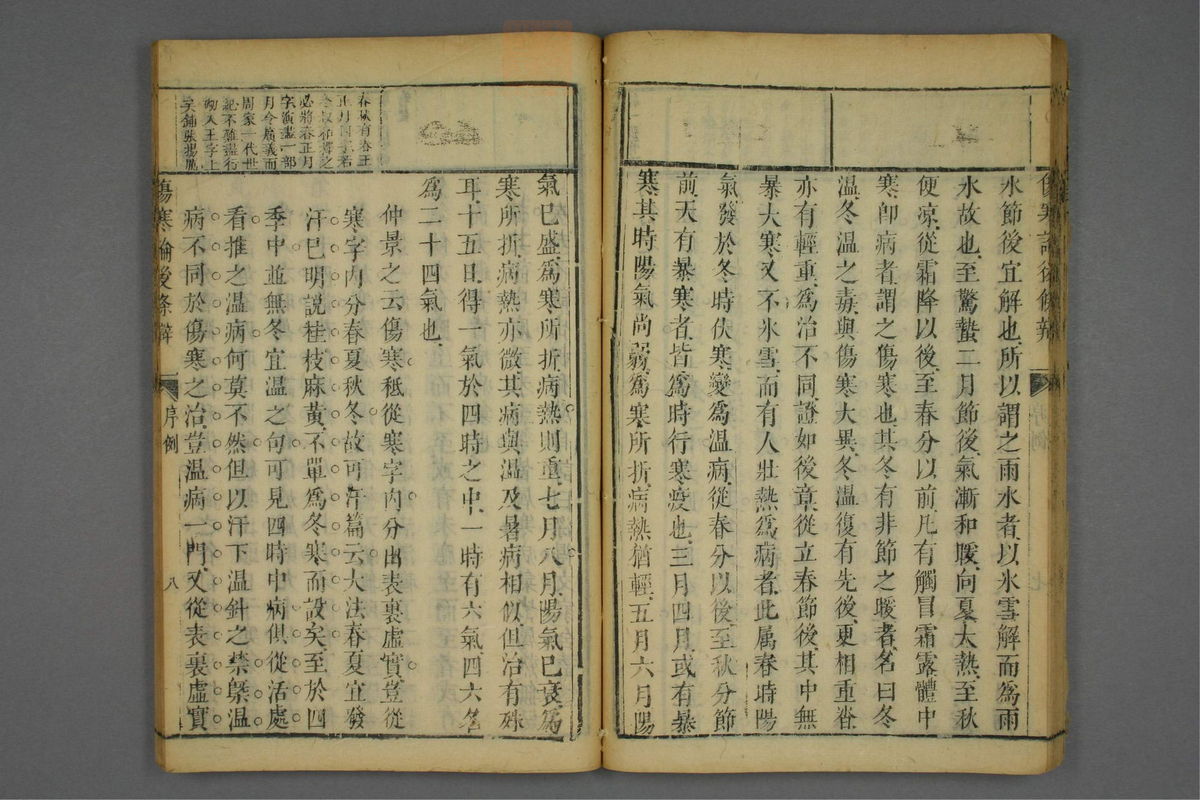 傷寒論後條辨
序例
七
水節後宜解也所以謂之雨水者以氷雪解而爲雨
水故也至驚蟄二月節後氣漸和暖向夏大熱至秋
便凉從霜降以後至春分以前凡有觸冒霜露體中
寒卽病者謂之傷寒也其冬有非節之暖者名曰冬
温冬温之毒與傷寒大異冬温復有先後更相重沓
亦有輕重爲治不同證如後章從立春節後其中無
暴大寒又不氷雪而有人壯熱爲病者此属春時陽
氣發於冬時伏寒變爲温病從春分以後至秋分節
前天有暴寒者皆爲時行寒疫也三月四月或有暴
寒其時陽氣尚弱爲寒所折病熱猶輕五月六月陽
氣已盛爲寒所折病熱則重七月八月陽氣已衰爲
寒所折病熱亦微其病與温及暑病相似但治有殊
耳十五日得一氣於四時之中一時有六氣四六名
爲二十四氣也
仲景之云傷寒秪從寒字内分出表裏虛實豈從
寒字内分春夏秋冬故可汗篇云大法春夏宜發
汗已明説桂枝麻黃不單爲冬寒而設矣至於四
季中並無冬宜温之句可見四時中病俱從活處
看推之温病何莫不然但以汗下温針之禁槩温
病不同於傷寒之治豈温病一門又從表裏虛實
春秋有春王
正月四字若
必將春正月
字演盡一部
月令扇義而
周家一代世
紀不難盡行
矣鋪張揚風
傷寒論後條辨
序例
八